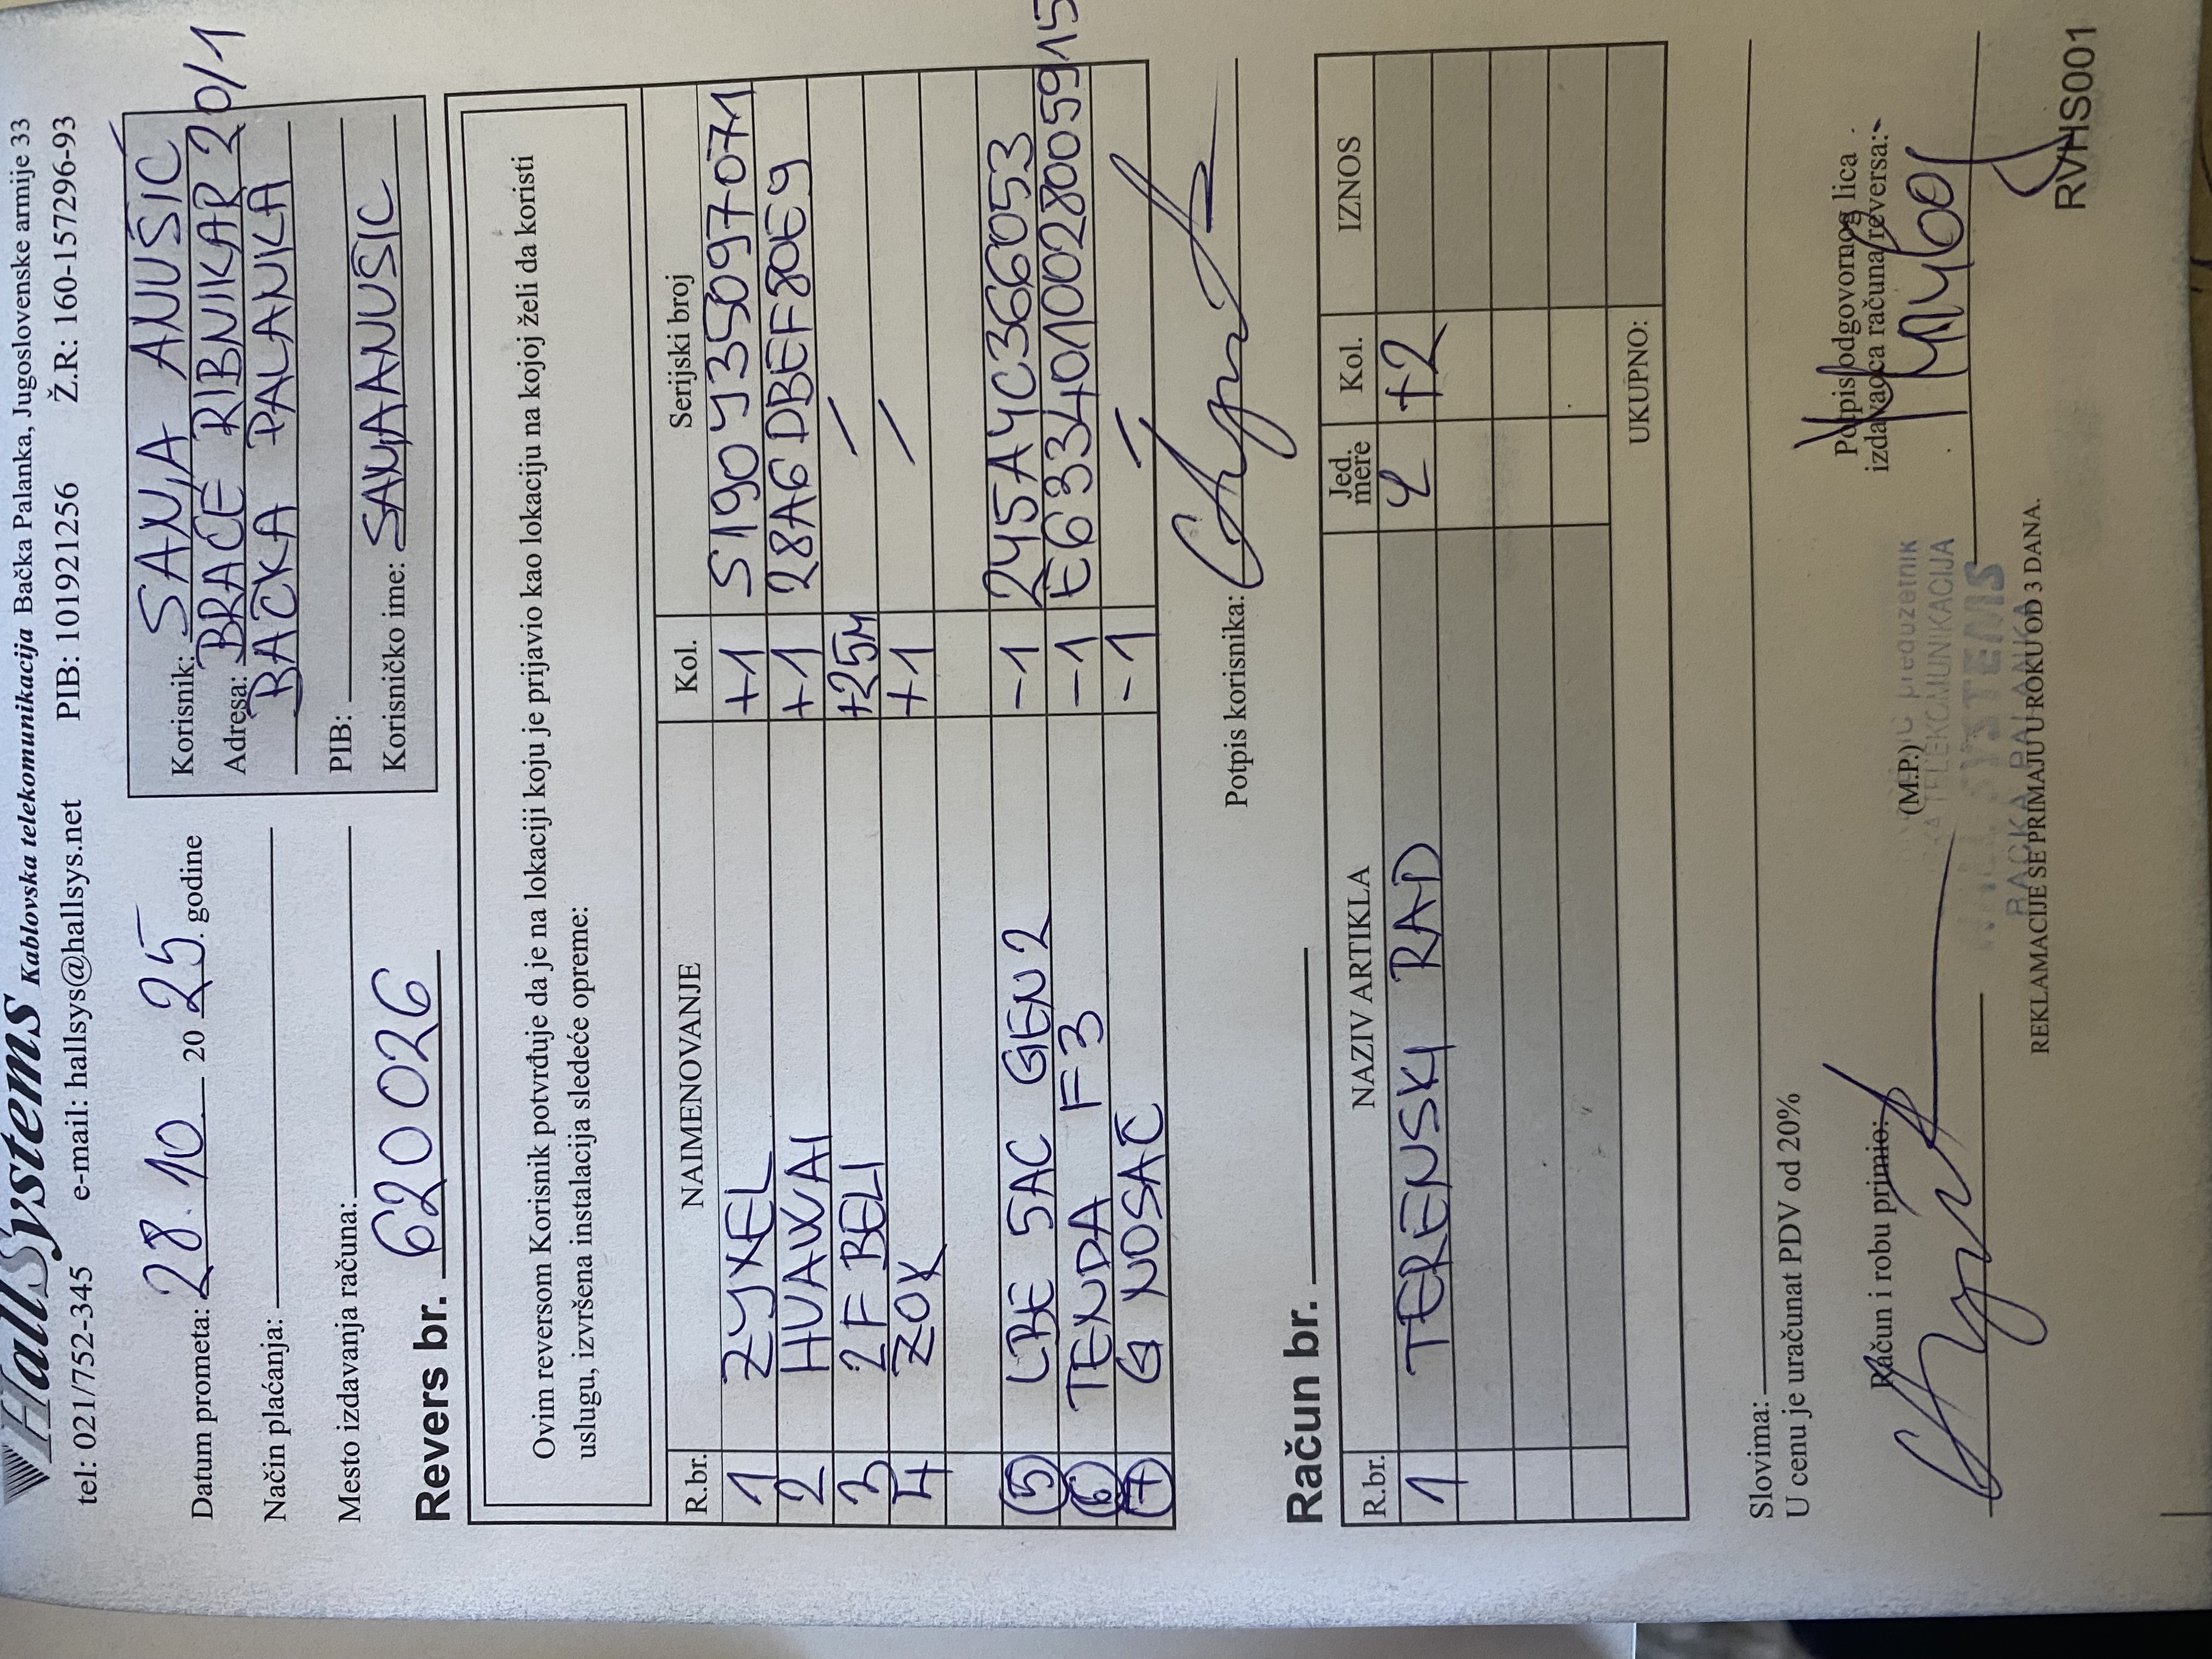 HallSystems Kablovska telekomunikacija Bačka Palanka, Jugoslovenske armije 33
tel: 021/752-345 e-mail: hallsys@hallsys.net PIB: 101921256 Ž.R: 160-157296-93
Datum prometa: 28.10. 20 25. godine
Način plaćanja:
Mesto izdavanja računa:
Revers br. 620026
Korisnik: SANJA ANUŠIĆ
Adresa: BRAĆE RIBNIKAR 20/1
BAČKA PALANKA
PIB:
Korisničko ime: SANJAANUSIC
Ovim reversom Korisnik potvrđuje da je na lokaciji koju je prijavio kao lokaciju na kojoj želi da koristi
uslugu, izvršena instalacija sledeće opreme:
R.br. NAIMENOVANJE Kol. Serijski broj
1 ZYXEL +1 S190Y35097071
2 HUAWAI +1 28A6DBEF80E9
3 2F BELI +25M /
4 ZOK +1 /
5 LBE 5AC GEN2 -1 245A4C366053
6 TENDA F3 -1 E6334010028005915
7 G NOSAČ -1 /
Potpis korisnika:
Račun br.
R.br. NAZIV ARTIKLA Jed. mere Kol. IZNOS
1 TERENSKI RAD Č +2
UKUPNO:
Slovima:
U cenu je uračunat PDV od 20%
Račun i robu primio:
(M.P.)
Potpis odgovornog lica
izdavaoca računa/reversa:
TELEKOMUNIKACIJA
HALL SYSTEMS
BAČKA PALANKA
REKLAMACIJE SE PRIMAJU U ROKU OD 3 DANA.
RVHS001